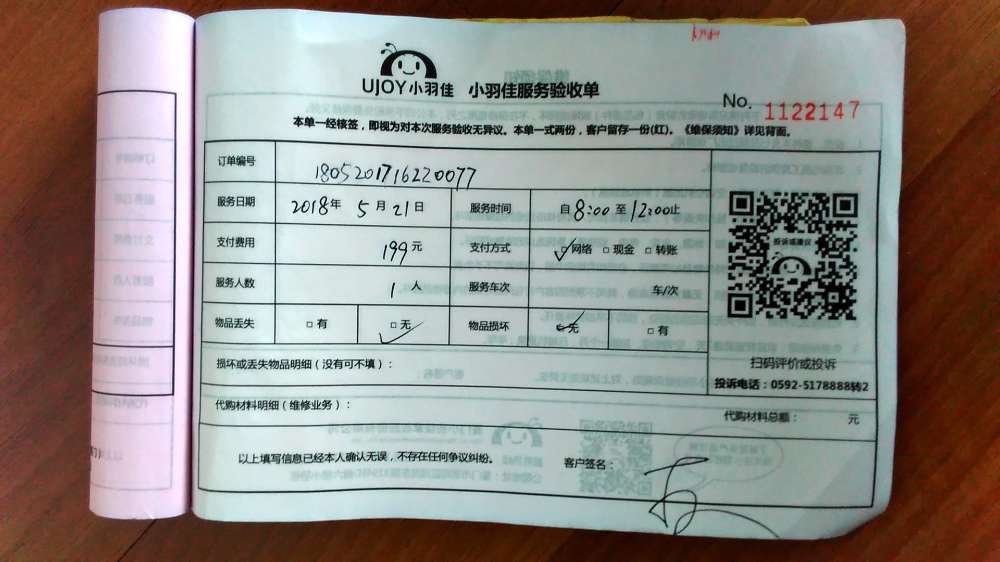 UJOY小羽佳 小羽佳服务验收单
No. 1122147
本单一经核签，即视为对本次服务验收无异议。本单一式两份，客户留存一份(红)。《维保须知》详见背面。
订单编号 1805201716220077
服务日期 2018年 5月 21日 服务时间 自 8:00 至 12:00止
支付费用 199元 支付方式 ☑网络 □现金 □转账
服务人数 1人 服务车次 车/次
物品丢失 □有 ☑无 物品损坏 ☑无 □有
投诉或建议
扫码评价或投诉
投诉电话：0592-5178888转2
损坏或丢失物品明细（没有可不填）：
代购材料明细（维修业务）： 代购材料总额： 元
以上填写信息已经本人确认无误，不存在任何争议纠纷。 客户签名：